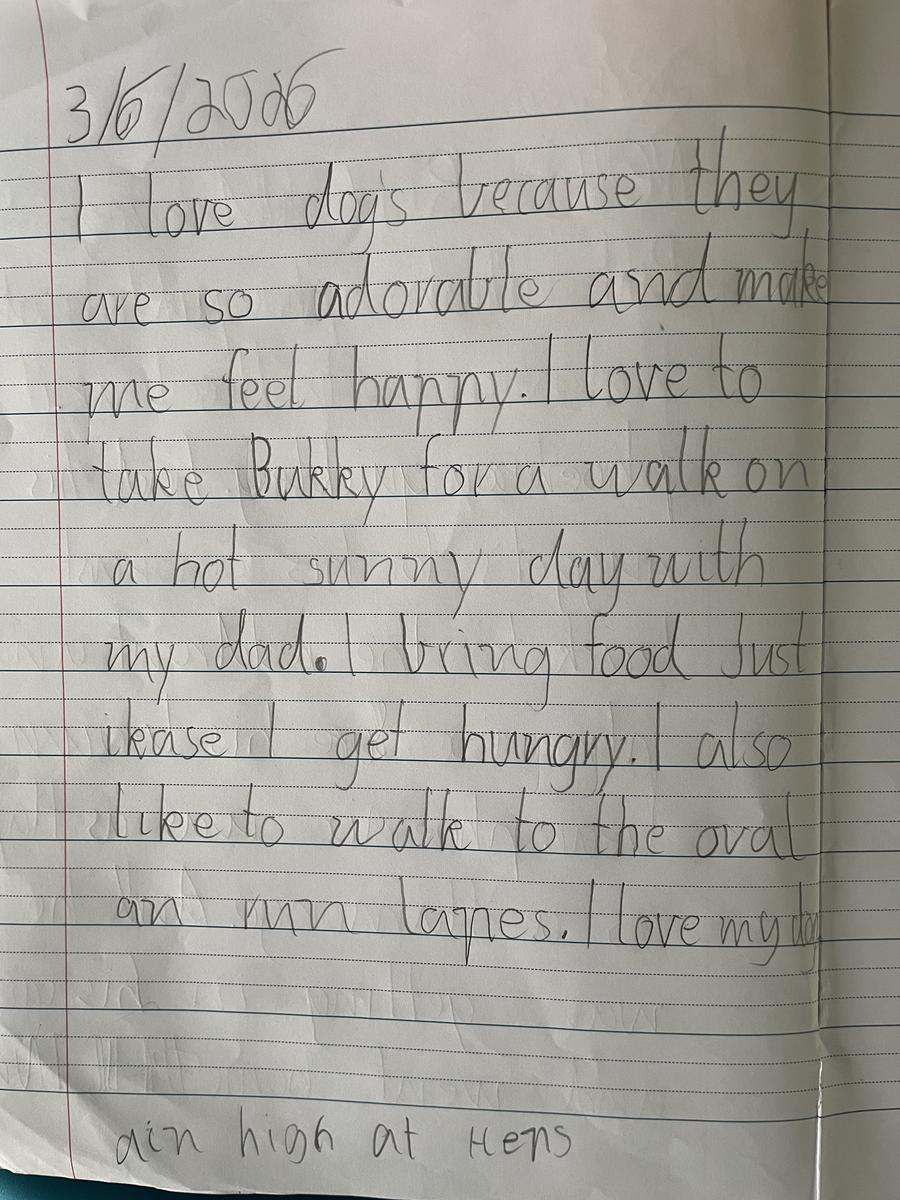 3/6/2026
I love dog's because they
are so adorable and make
me feel happy. I love to
take Bukky for a walk on
a hot sunny day with
my dad. I bring food Just
ikase I get hungry. I also
like to walk to the oval
an run lapes. I love my dog
aim high at Heps